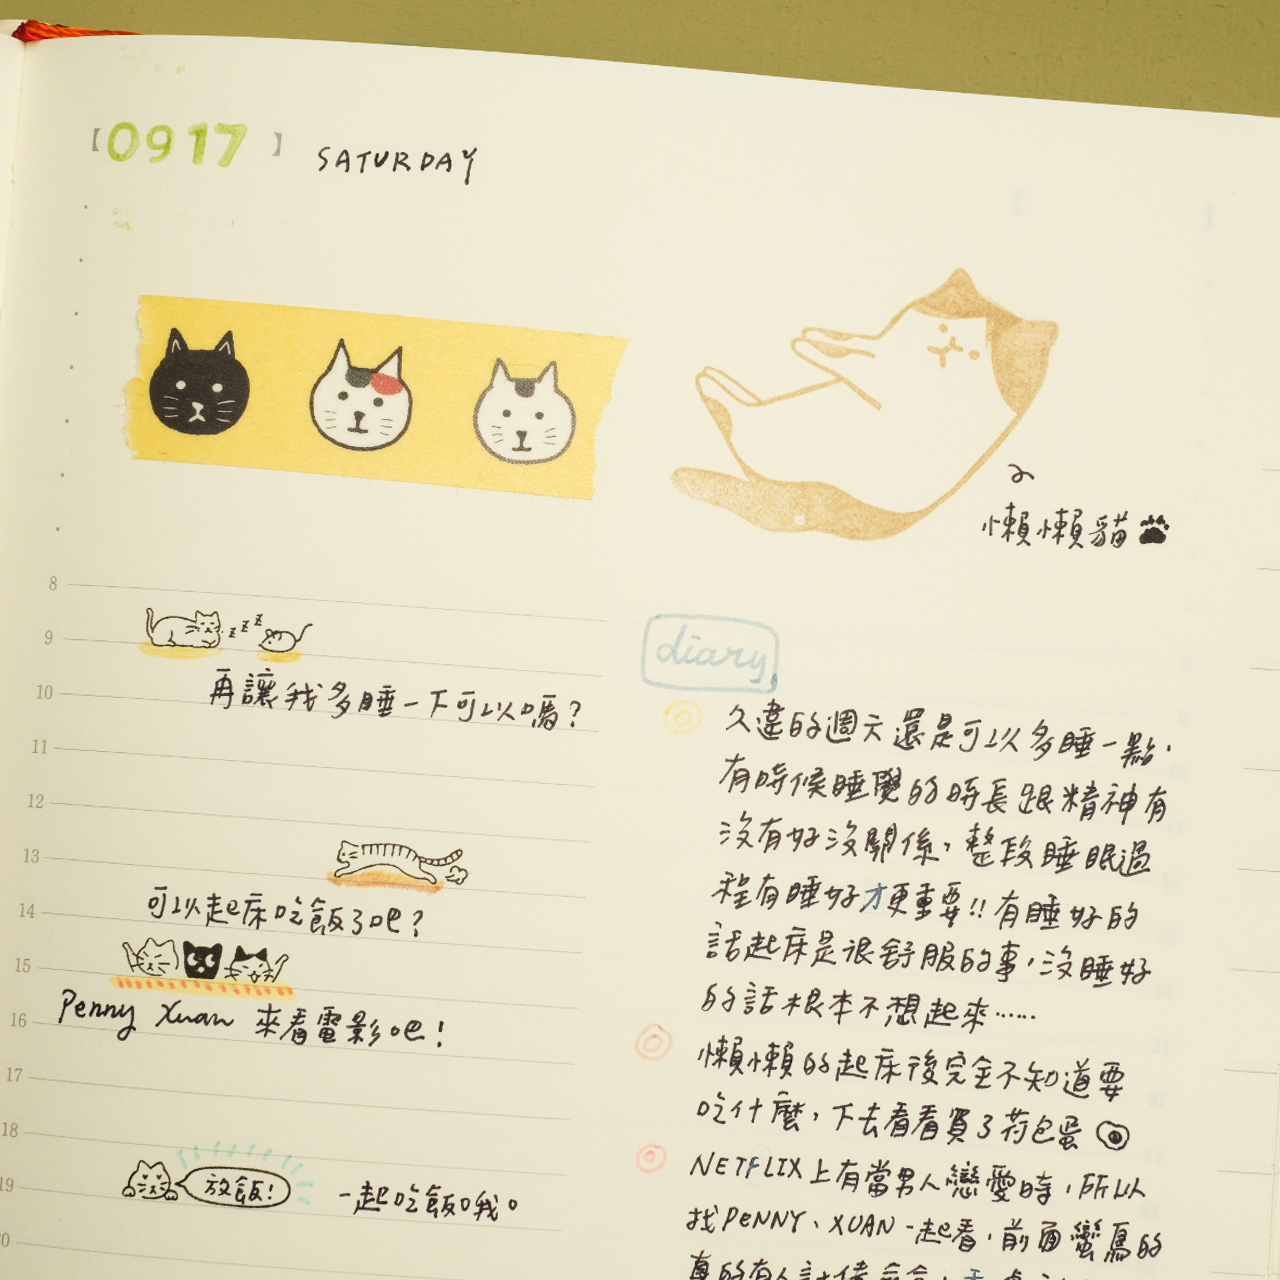 【0917】 SATURDAY
懶懶貓
8
9
z z z
10
再讓我多睡一下可以嗎?
11
12
13
14
可以起床吃飯了吧?
15
16
Penny Xuan 來看電影吧!
17
18
19
放飯!
一起吃飯哦。
20
diary
久違的週六還是可以多睡一點,
有時候睡覺的時長跟精神有
沒有好沒關係,整段睡眠過
程有睡好才更重要!!有睡好的
話起床是很舒服的事,沒睡好
的話根本不想起來……
懶懶的起床後完全不知道要
吃什麼,下去看看買了荷包蛋
NETFLIX上有當男人戀愛時,所以
找PENNY、XUAN一起看,前面蠻鳥的
真的有人